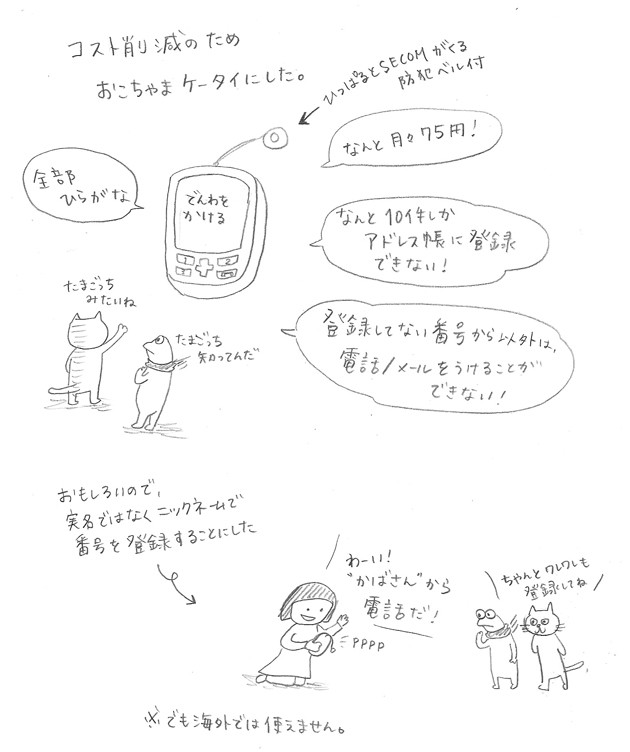 コスト削減のため
おこちゃまケータイにした。
ひっぱるとSECOMがくる
防犯ベル付
なんと月々75円！
全部
ひらがな
でんわを
かける
1 2
なんと10件しか
アドレス帳に登録
できない！
たまごっち
みたいね
たまごっち
知ってんだ
登録してない番号から以外は、
電話/メールをうけることが
できない！
おもしろいので、
実名ではなくニックネームで
番号を登録することにした
わーい！
"かばさん"から
電話だ！
PPPP
ちゃんとワレワレも
登録してね
※でも海外では使えません。